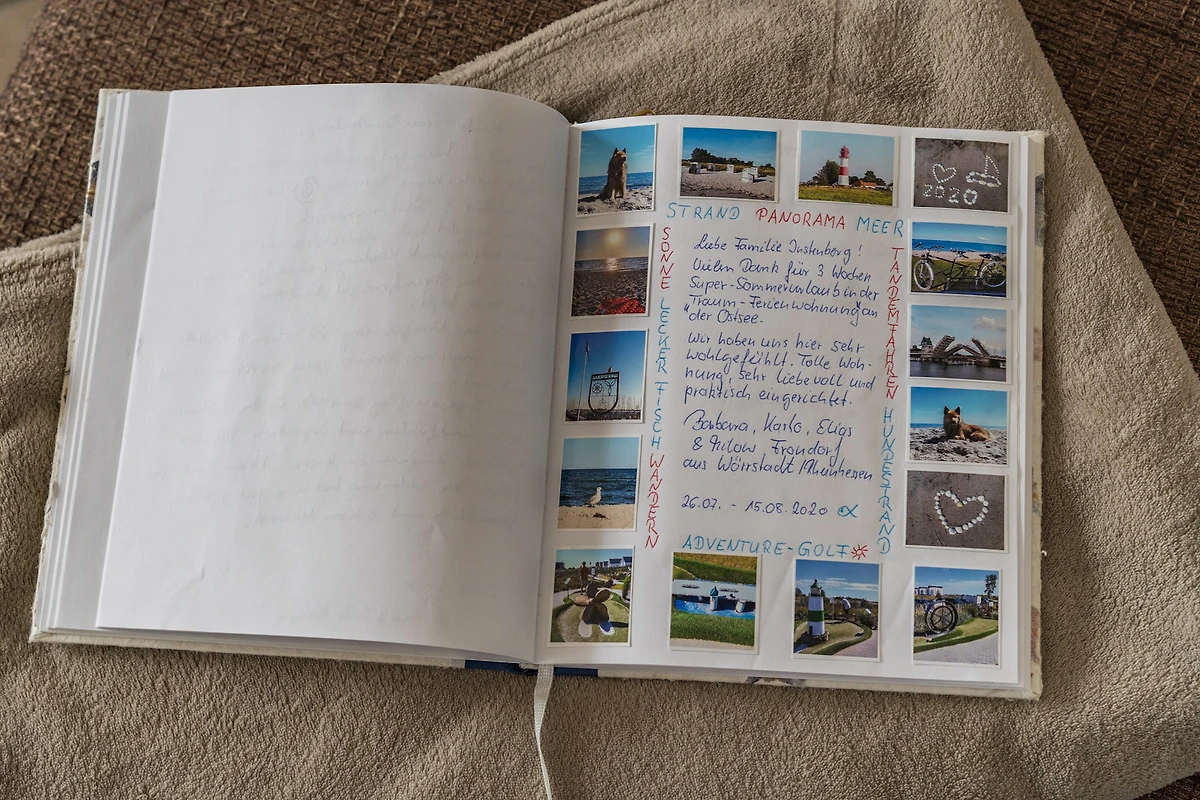 2020
STRAND PANORAMA MEER
SONNE LECKER FISCH WANDERN
Liebe Familie Instenberg!
Vielen Dank für 3 Wochen
Super-Sommerurlaub in der
"Traum-Ferienwohnung" an
der Ostsee.
Wir haben uns hier sehr
wohlgefühlt. Tolle Woh-
nung, sehr liebevoll und
praktisch eingerichtet.
Barbara, Karlo, Elias
& Milow Frondorf
aus Wörrstadt / Rheinhessen
26.07. - 15.08.2020
TANDEMFAHREN HUNDESTRAND
ADVENTURE-GOLF